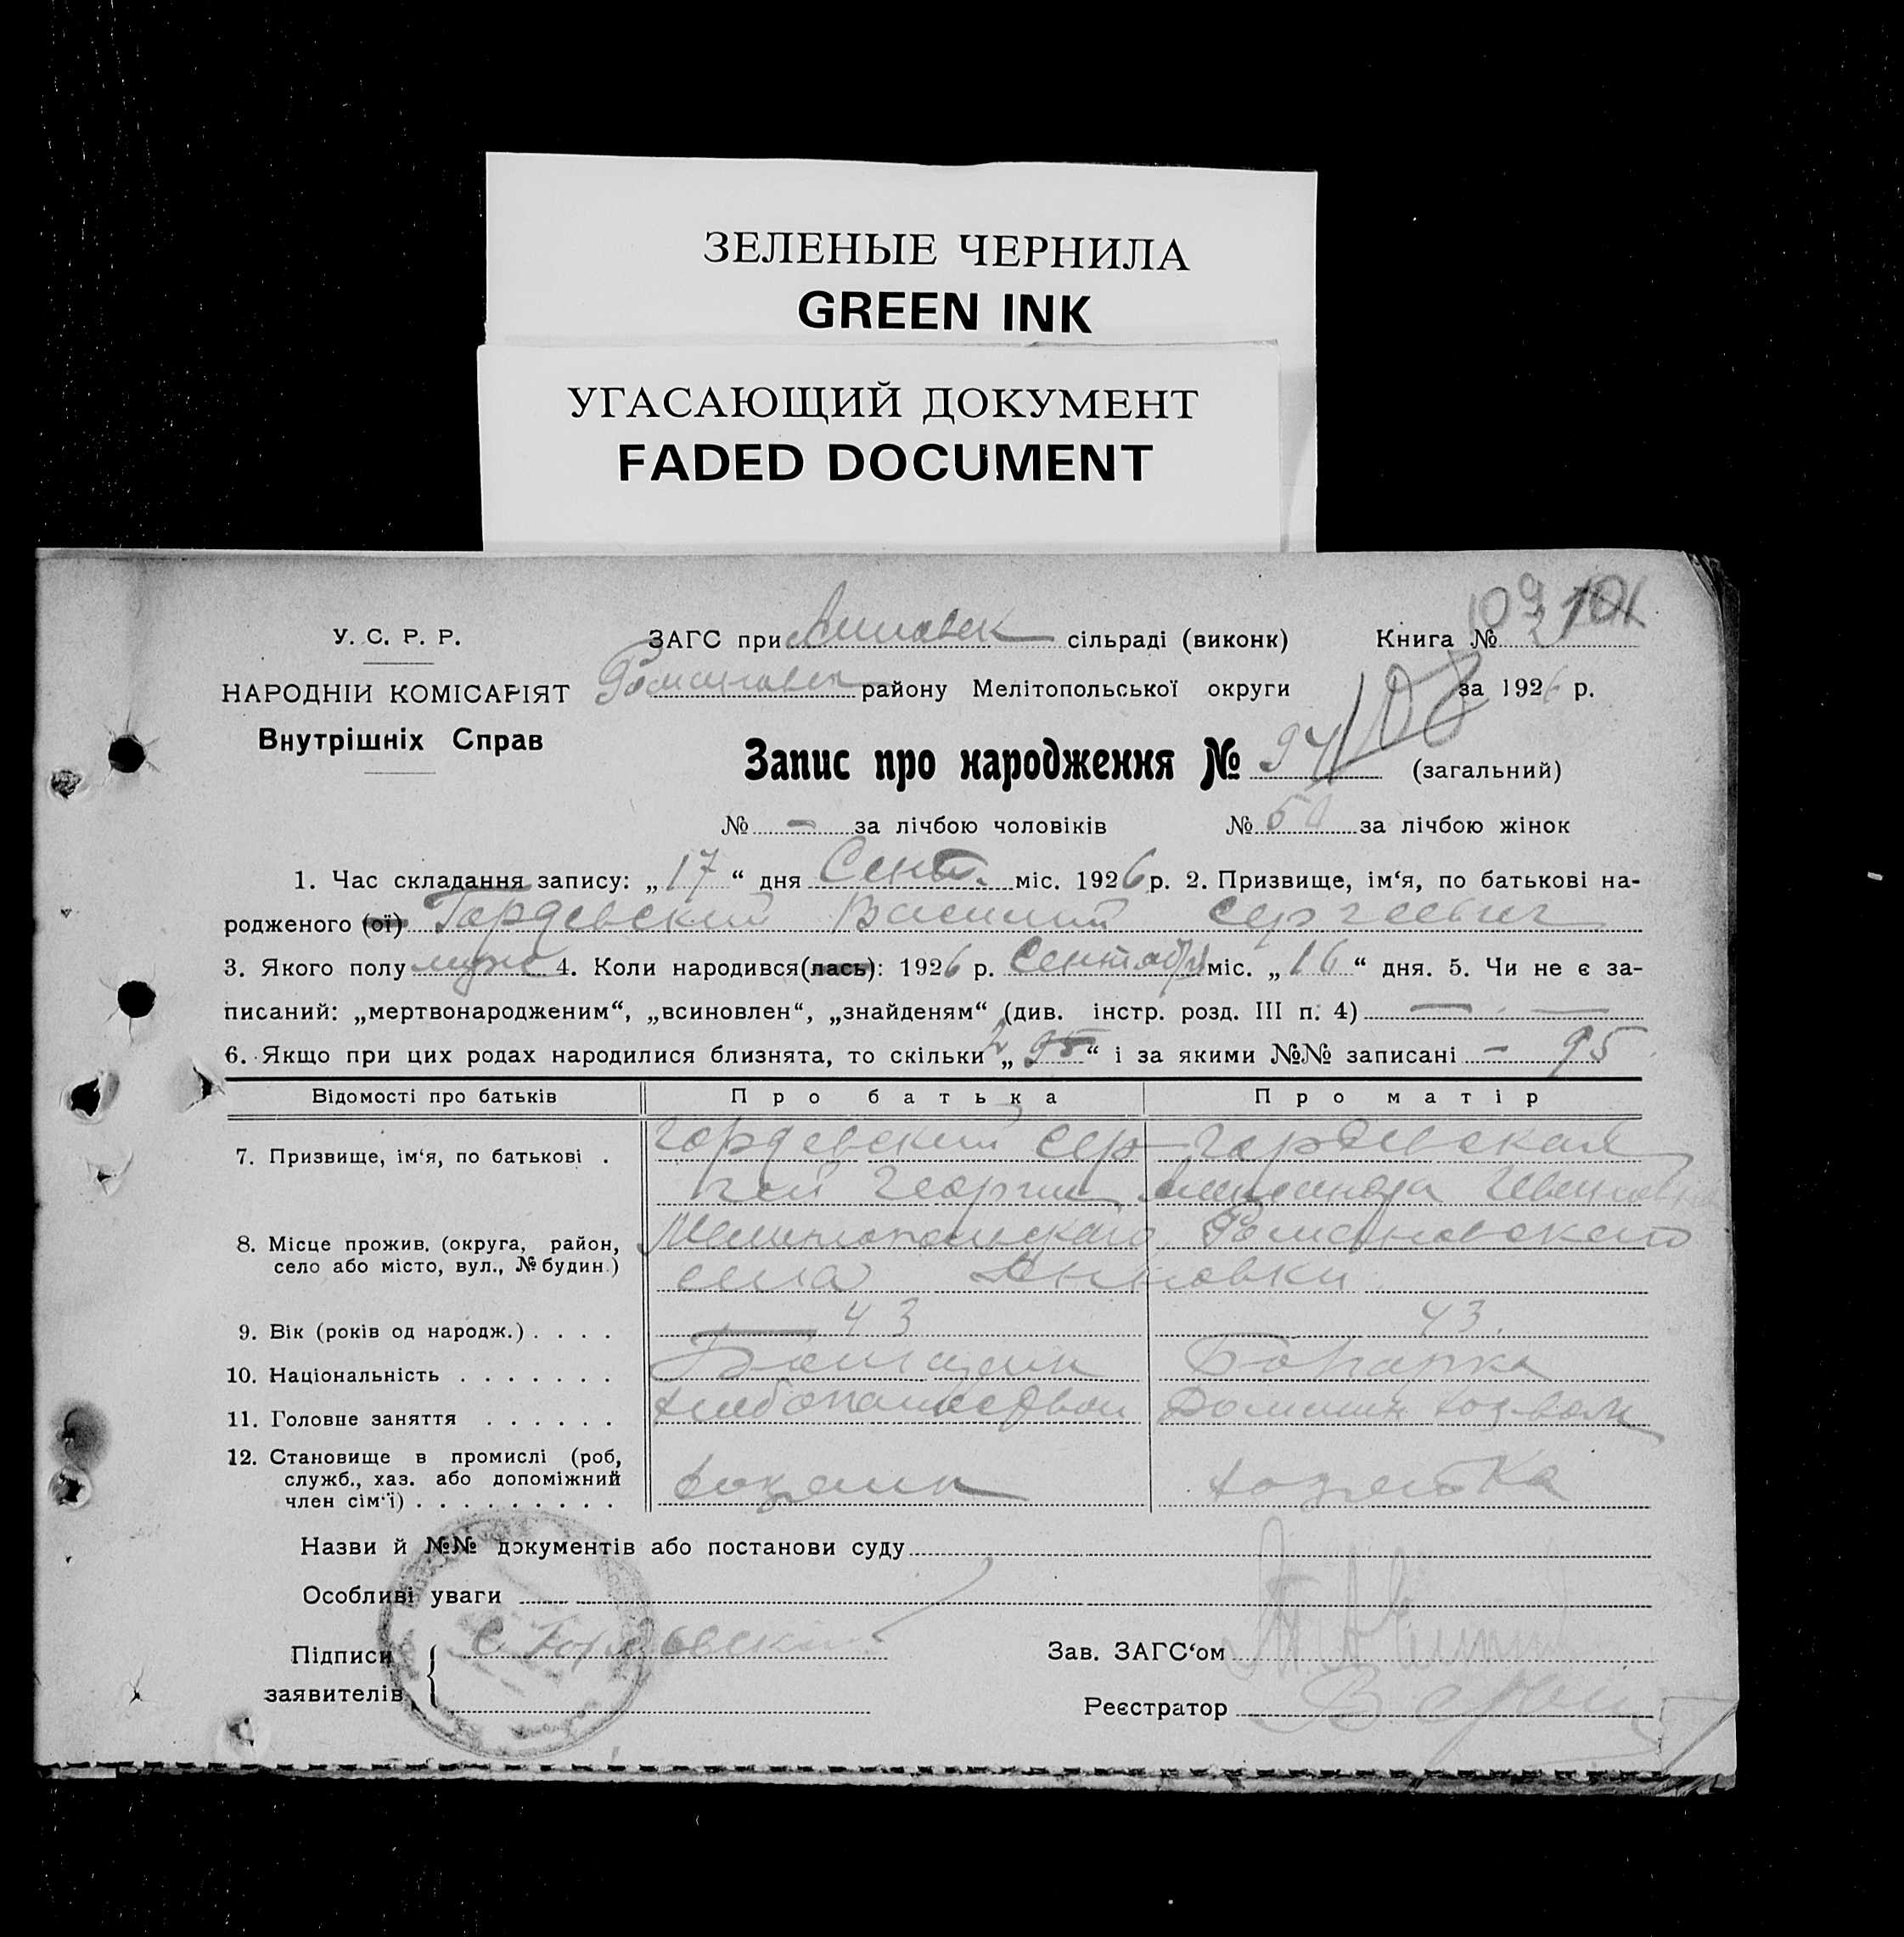 ЗЕЛЕНЫЕ ЧЕРНИЛА
GREEN INK
УГАСАЮЩИЙ ДОКУМЕНТ
FADED DOCUMENT
109 101
У. С. Р. Р. ЗАГС при сільраді (виконк) Книга № 2
НАРОДНІЙ КОМІСАРІЯТ району Мелітопольської округи за 1926 р.
Внутрішніх Справ
Запис про народження № 94 (загальний)
№ — за лічбою чоловіків № за лічбою жінок
1. Час складання запису: „17“ дня Сент. міс. 1926 р. 2. Призвище, ім‘я, по батькові на-
родженого (ої) Гордевский Василий Сергеевич
3. Якого полу муж 4. Коли народився(лась): 1926 р. Сентября міс. „16“ дня. 5. Чи не є за-
писаний: „мертвонародженим“, „всиновлен“, „знайденям“ (див. інстр. розд. III п. 4) — —
6. Якщо при цих родах народилися близнята, то скільки 2 „95“ і за якими №№ записані — 95
Відомості про батьків Про батька Про матір
7. Призвище, ім‘я, по батькові . Гордевский Сер- Гордевская
гей Георгии
8. Місце прожив. (округа, район, Мелитопольского Романовского
село або місто, вул., № будин.) села
9. Вік (років од народж.) . . . . 43 43.
10. Національність . . . . . . . Болгарин Болгарка
11. Головне заняття . . . . . . Домашн хоз-вом
12. Становище в промислі (роб,
служб., хаз. або допоміжний хозяин хозяйка
член сім‘ї) . . . . . . . . .
Назви й №№ документів або постанови суду
Особливі уваги
Підписи С Гордевский Зав. ЗАГС‘ом
заявителів
Реєстратор